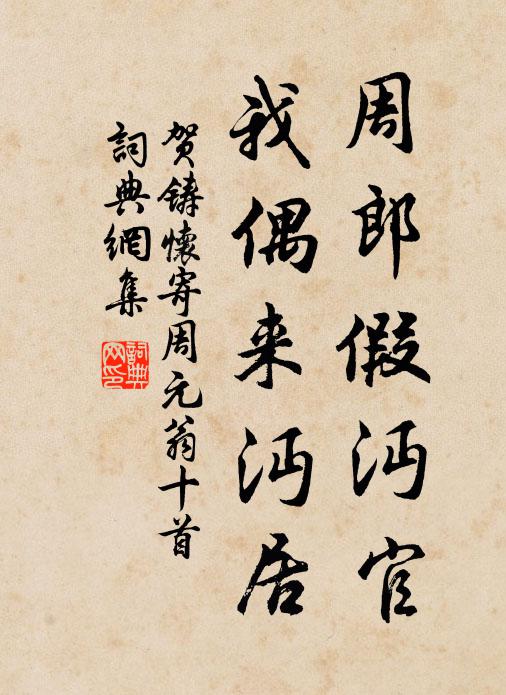 周郎假沔官
我偶来沔居
贺鑄懷寄周元翁十首
詞典網集
詞典網印